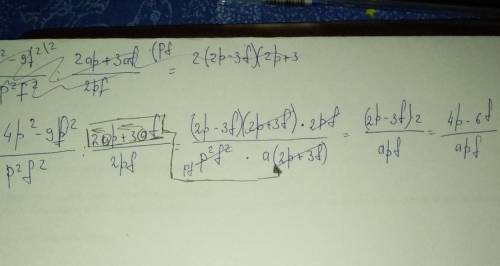 ² - 9f²)² / p²f² : 2ap+3af / 2pf (pf = 2(2p-3f)(2p+3
4p² - 9f² / p²f² : 2ap+3af / 2pf = (2p-3f)(2p+3f) · 2pf / p²f² · a(2p+3f) = (2p-3f)2 / apf = 4p-6f / apf
pf